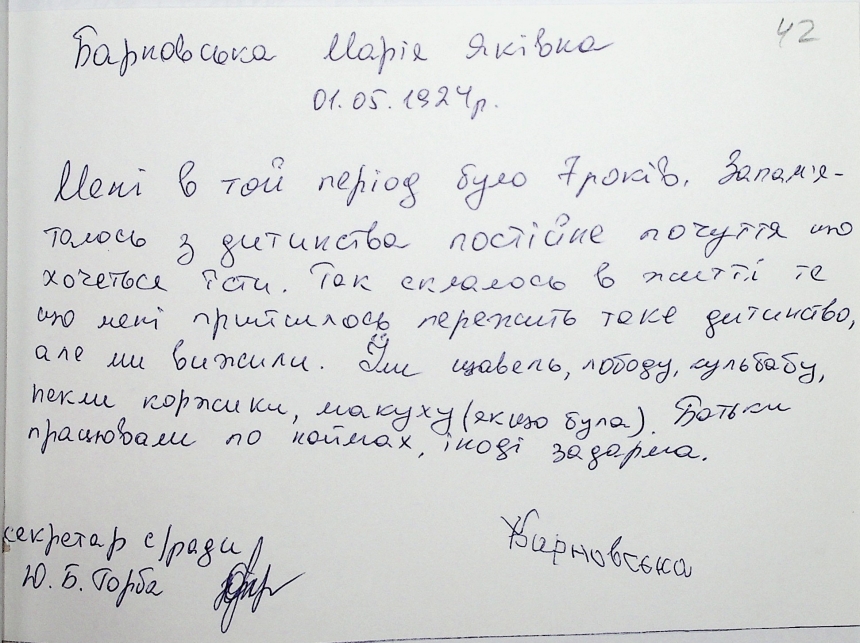 42
Барновська Марія Яківна
01.05.1924р.
Мені в той період було 7років. Запам'я-
талось з дитинства постійне почуття що
хочеться їсти. Так склалось в житті те
що мені прийшлось пережить таке дитинство,
але ми вижили. Їли щавель, лободу, кульбабу,
пекли коржики, макуху (якщо була). Батьки
працювали по наймах, іноді задарма.
секретар с/ради
Ю. Б. Горба
Барновська